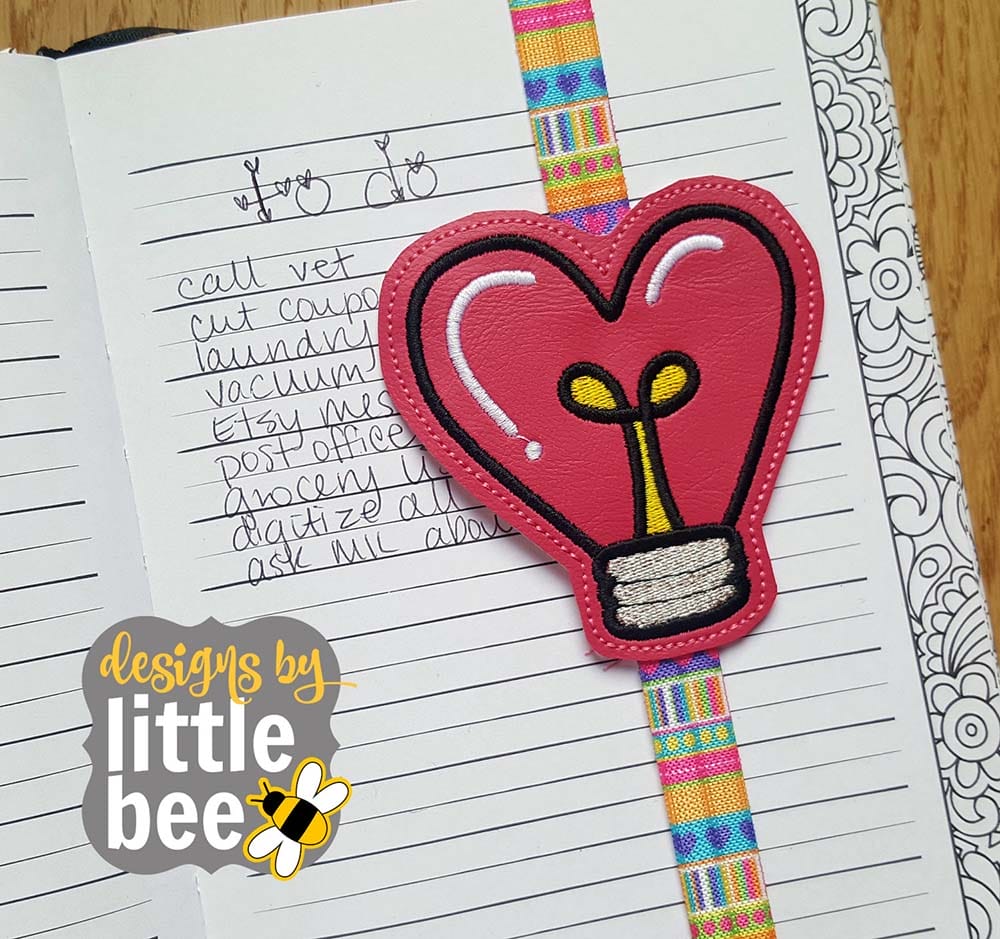 to do
call vet
cut coupo
laundry
vacuum
Etsy mes
post office
grocery li
digitize all
ask MIL abou
designs by
little
bee